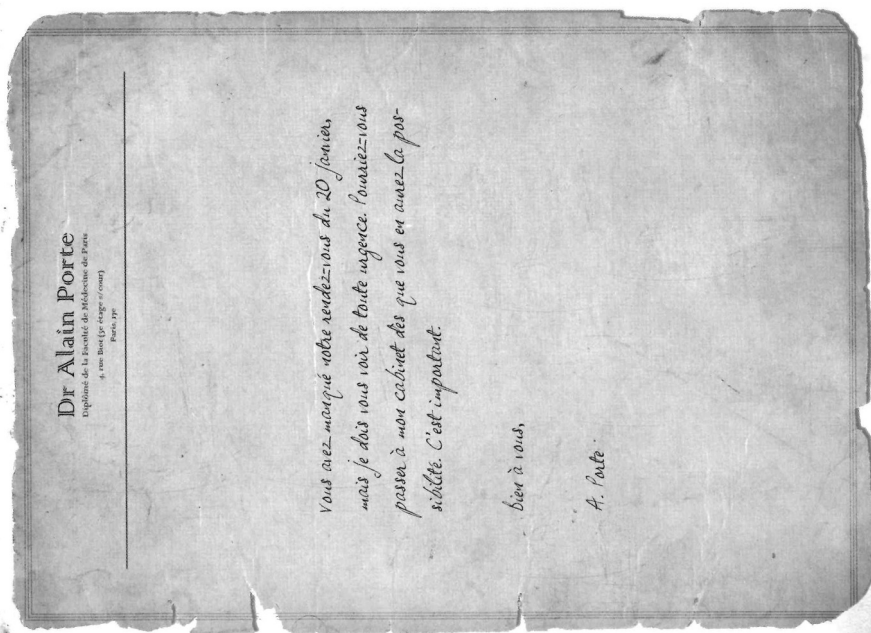 Dr Alain Porte
Diplômé de la Faculté de Médecine de Paris
4, rue Biot (3e étage s/cour)
Paris, 17e
Vous avez manqué notre rendez-vous du 20 janvier,
mais je dois vous voir de toute urgence. Pourriez-vous
passer à mon cabinet dès que vous en aurez la pos-
sibilité. C'est important.
bien à vous,
A. Porte.